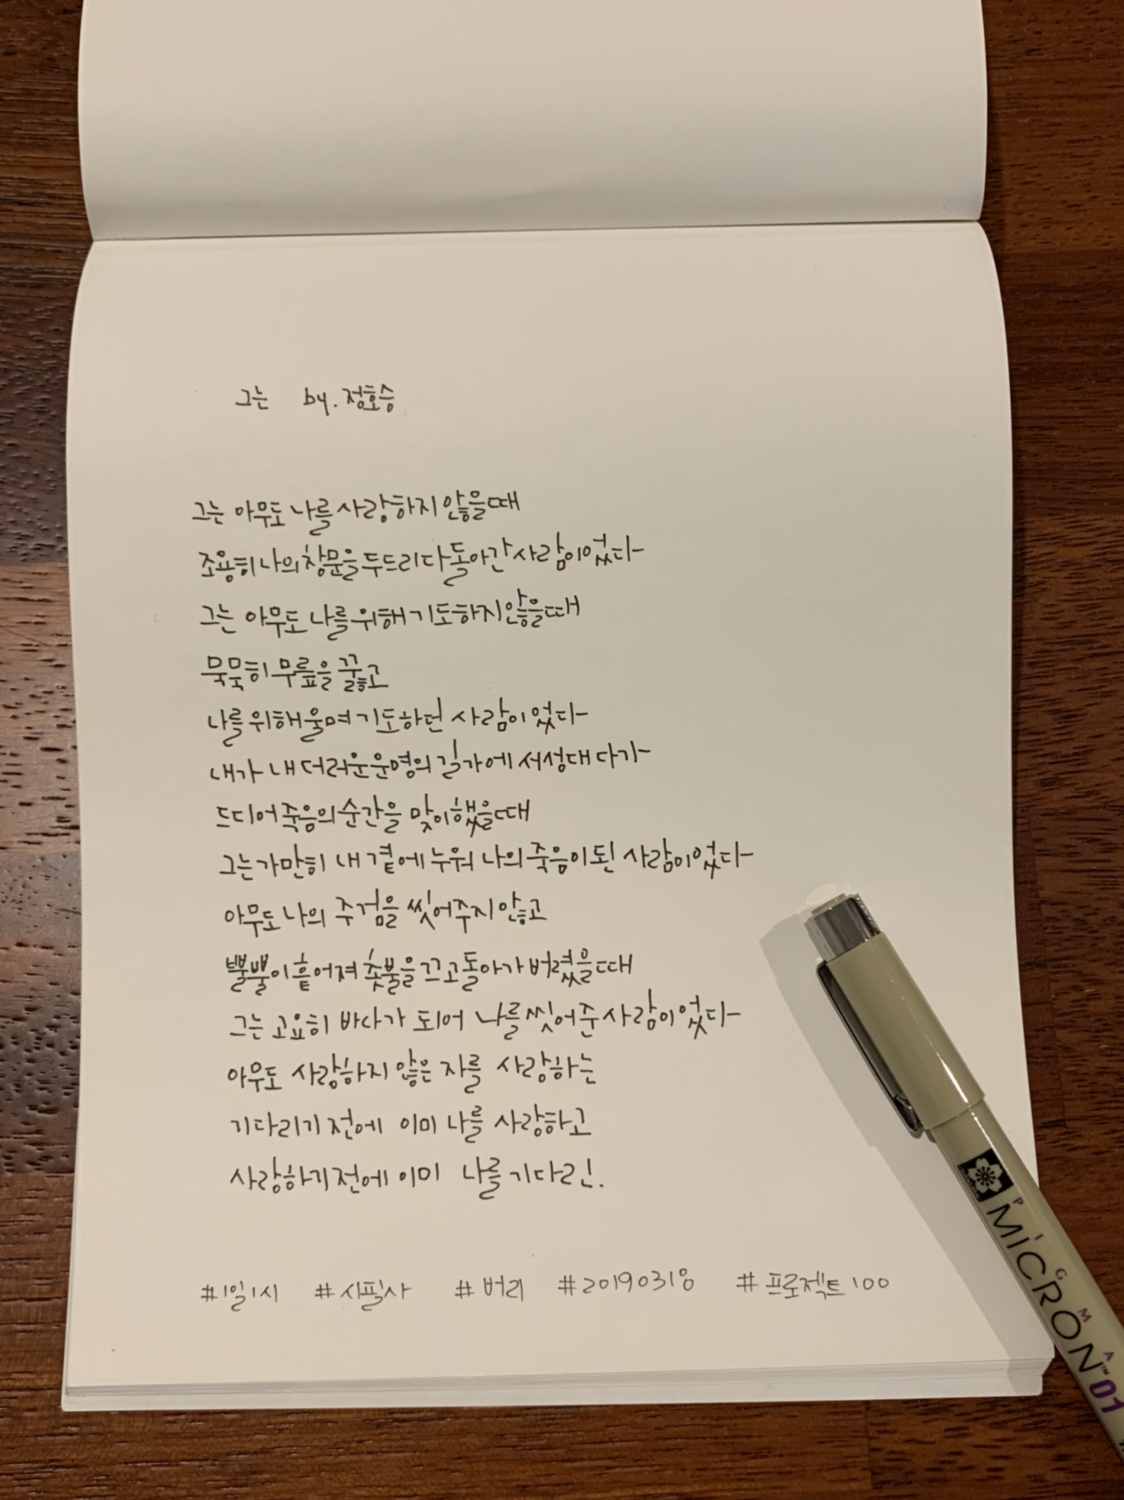 그는 by. 정호승
그는 아무도 나를 사랑하지 않을때
조용히 나의 창문을 두드리다 돌아간 사람이었다
그는 아무도 나를 위해 기도하지 않을때
묵묵히 무릎을 꿇고
나를 위해 울며 기도하던 사람이었다
내가 내 더러운 운명의 길가에 서성대다가
드디어 죽음의 순간을 맞이했을때
그는 가만히 내 곁에 누워 나의 죽음이 된 사람이었다
아무도 나의 주검을 씻어주지 않고
뿔뿔이 흩어져 촛불을 끄고 돌아가 버렸을때
그는 고요히 바다가 되어 나를 씻어준 사람이었다
아무도 사랑하지 않은 자를 사랑하는
기다리기 전에 이미 나를 사랑하고
사랑하기 전에 이미 나를 기다린.
#1일1시 #시필사 #버리 #20190318 #프로젝트100
PIGMA
MICRON™ 01